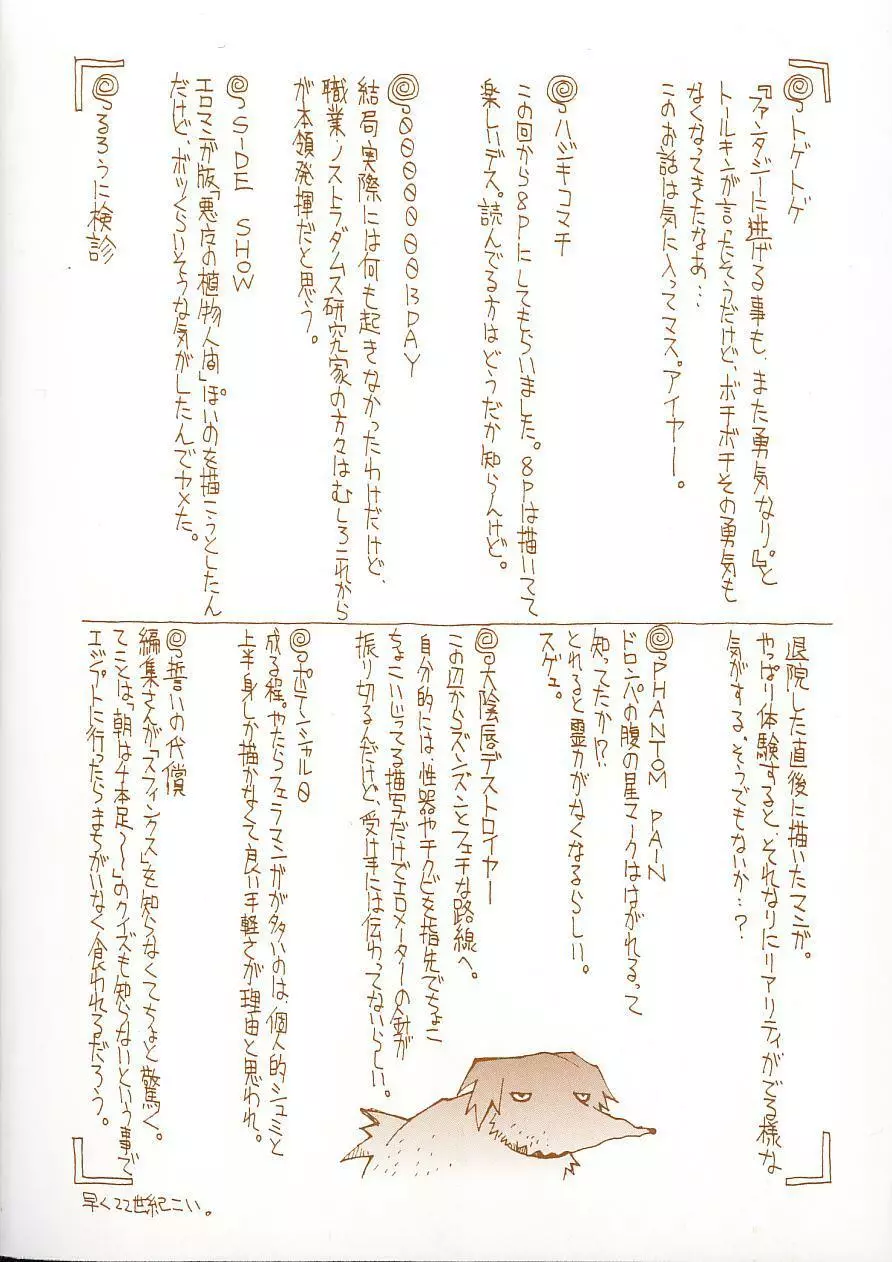 トゲトゲ
『ファンタジーに逃げる事も、また勇気なり。』と
トールキンが言ったそうだけど、ボチボチその勇気も
なくなってきたなあ…
このお話は気に入ってマス。アイヤー。
ハジキコマチ
この回から8Pにしてもらいました。8Pは描いてて
楽しいデス。読んでる方はどうだか知らんけど。
0000000B DAY
結局、実際には何も起きなかったわけだけど、
職業ノストラダムス研究家の方々はむしろこれから
が本領発揮だと思う。
SIDE SHOW
エロマンガ版「悪友の植物人間」ぽいのを描こうとしたん
だけど、ボツくらいそうな気がしたんでヤメた。
るろうに検診
退院した直後に描いたマンガ。
やっぱり体験すると、それなりにリアリティがでる様な
気がする。そうでもないか…?
PHANTOM PAIN
ドロンパの腹の星マークははがれるって
知ってたか!?
とれると霊力がなくなるらしい。
スゲェ。
大陰唇デストロイヤー
この辺からズンズンとフェチな路線へ。
自分的には、性器やチクビを指先でちょこ
ちょこいじってる描写だけでエロメーターの針が
振り切るんだけど、受け手には伝わってないらしい。
ポテンシャル0
成る程。やたらフェラマンガが多いのは、個人的シュミと
上半身しか描かなくて良い手軽さが理由と思われ。
誓いの代償
編集さんが「スフィンクス」を知らなくてちょと驚く。
てことは、「朝は4本足〜」のクイズも知らないという事で
エジプトに行ったらまちがいなく食われるだろう。
早く22世紀こい。